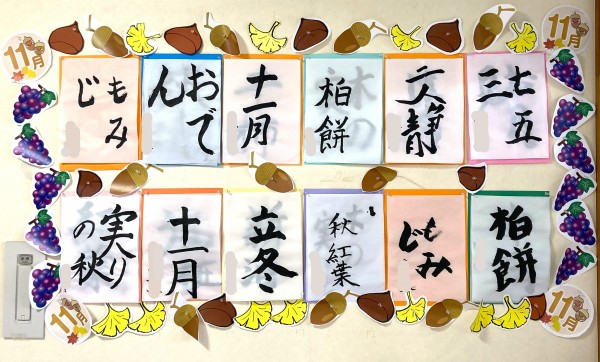 11月
11月
七五
三
二人静
柏餅
十一月
おで
ん
もみ
じ
柏餅
もみ
じ
秋紅葉
立冬
十一月
実り
の秋
11月
11月